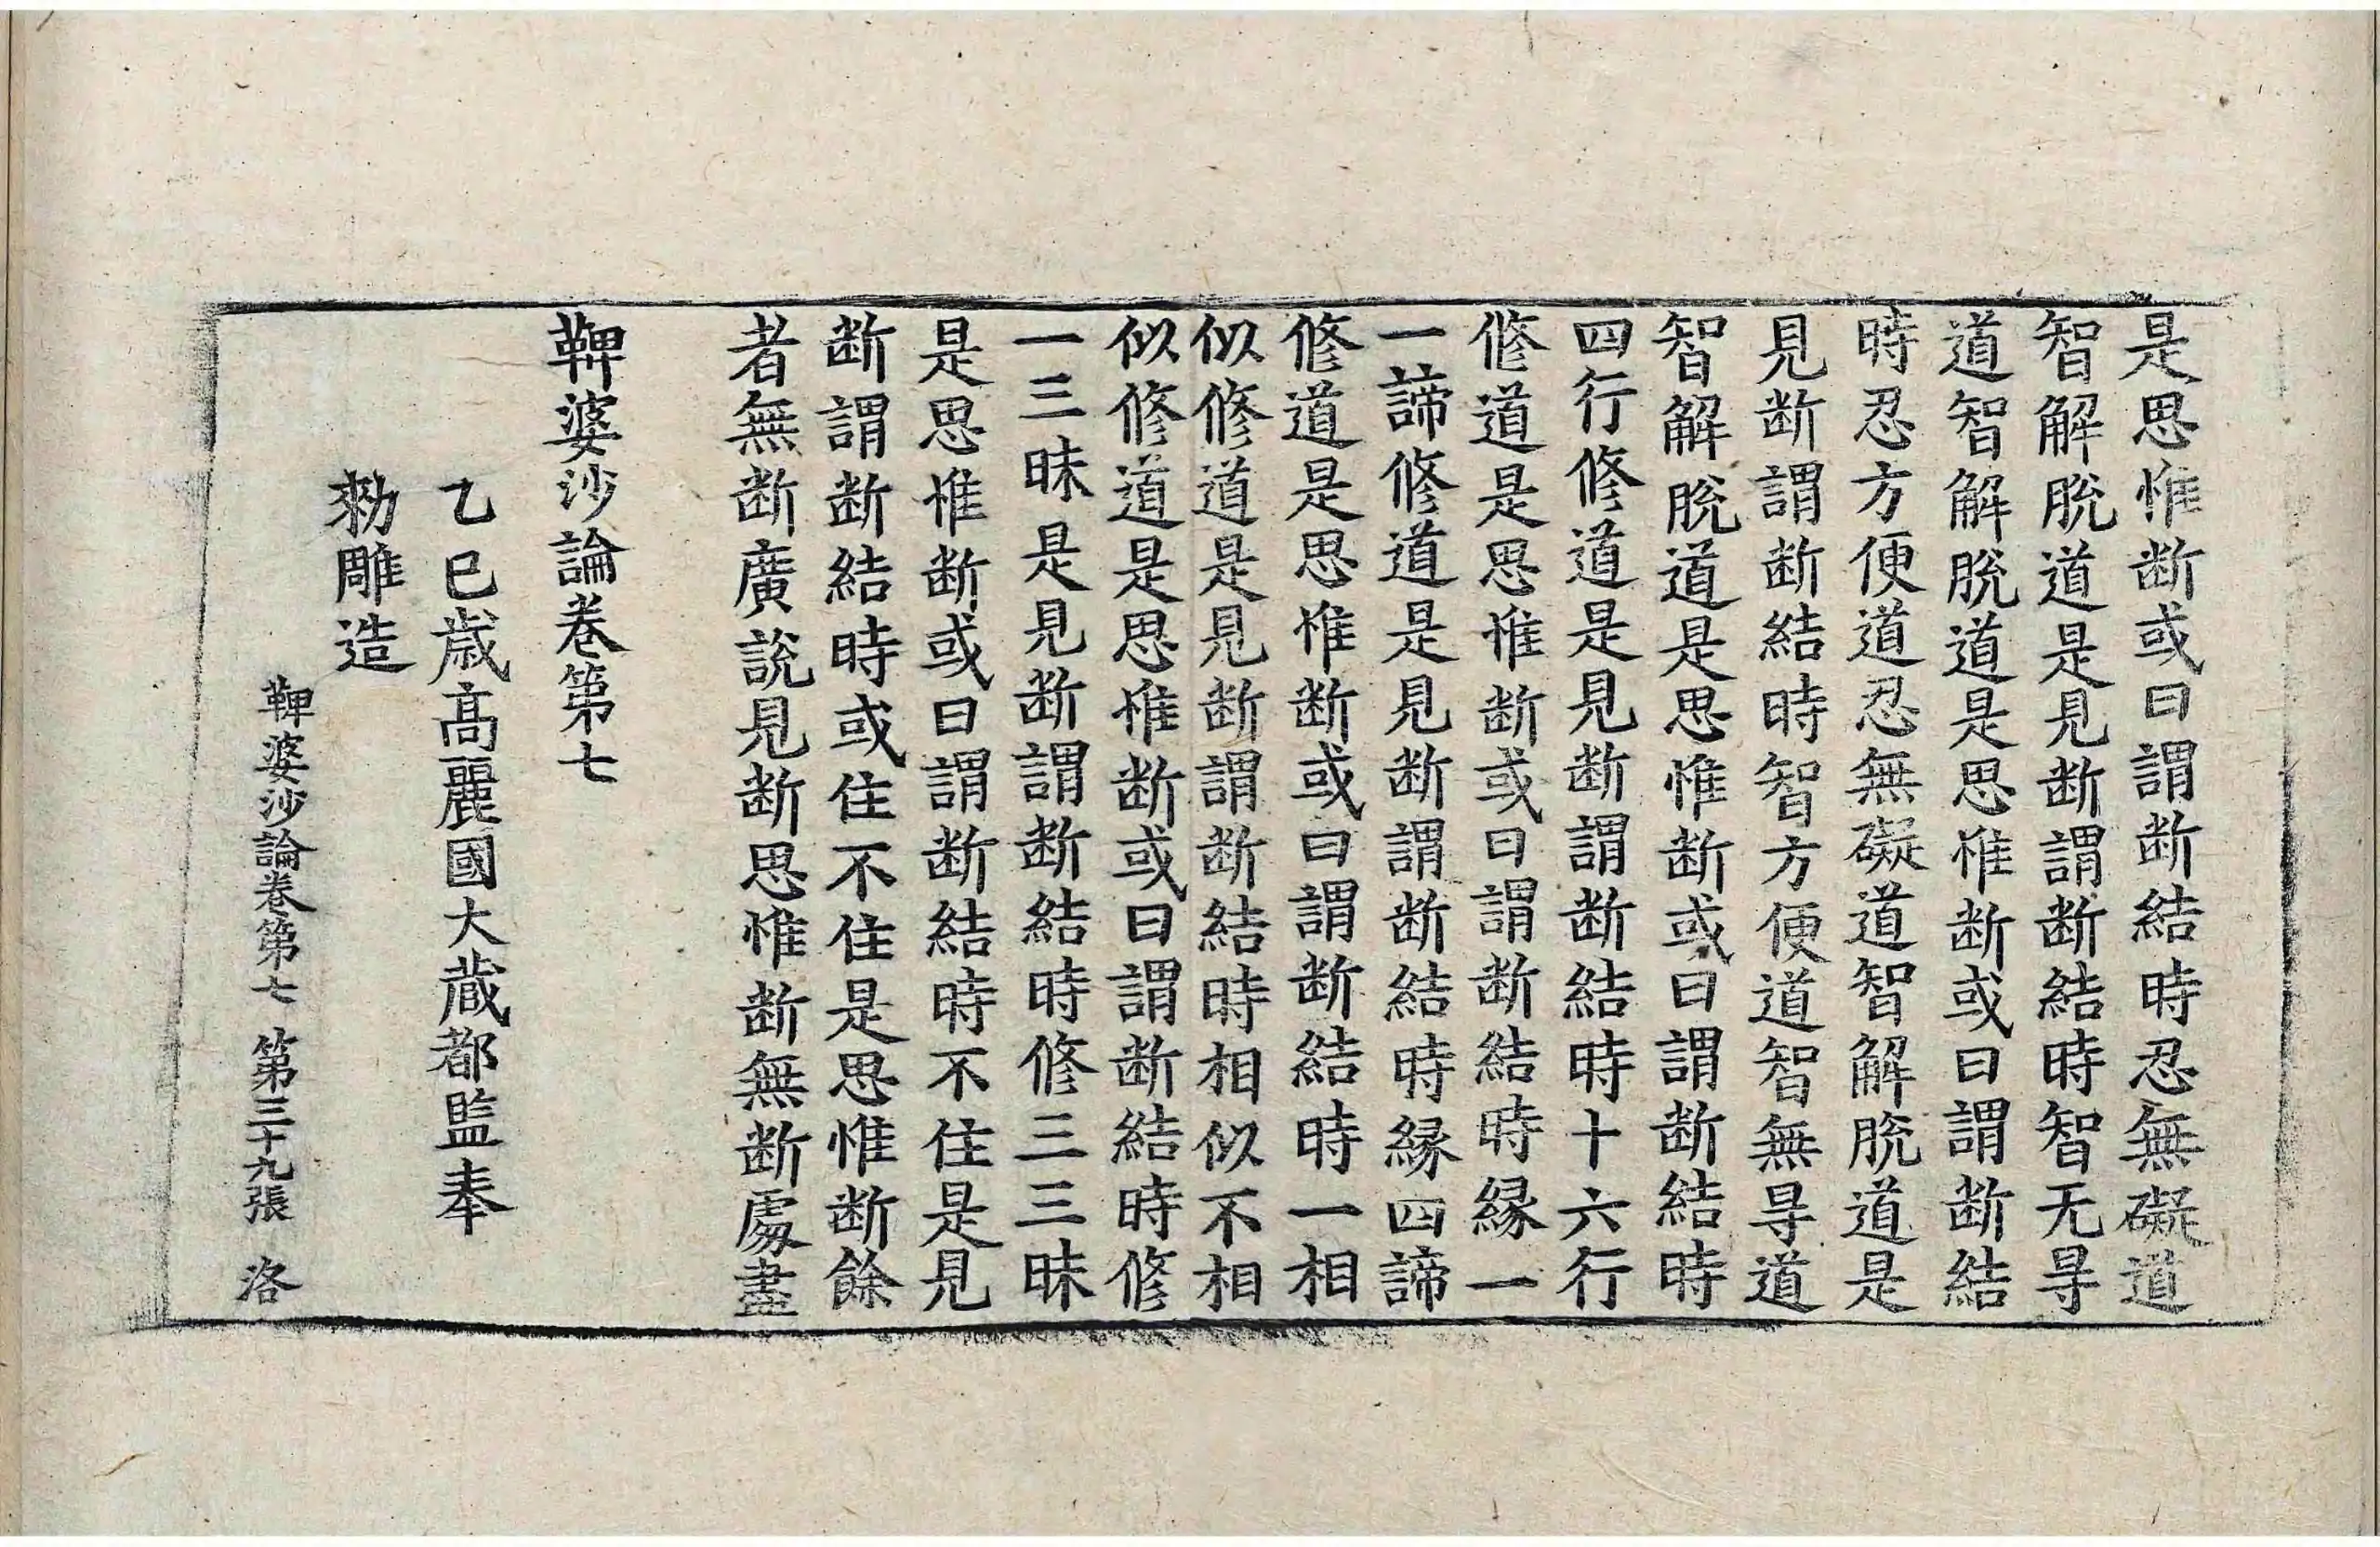 是思惟断或曰謂断結時忍無礙道
智解脫道是見断謂断結時智无㝵
道智解脫道是思惟断或曰謂断結
時忍方便道忍無礙道智解脫道是
見断謂断結時智方便道智無㝵道
智解脫道是思惟断或曰謂断結時
四行修道是見断謂断結時十六行
修道是思惟断或曰謂断結時縁一
一諦修道是見断謂断結時縁四諦
修道是思惟断或曰謂断結時一相
似修道是見断謂断結時相似不相
似修道是思惟断或曰謂断結時修
一三昧是見断謂断結時修三三昧
是思惟断或曰謂断結時不住是見
断謂断結時或住不住是思惟断餘
者無断廣說見断思惟断無断處盡
鞞婆沙論卷第七
乙巳歲高麗國大藏都監奉
勑雕造
鞞婆沙論卷第七 第三十九張 洛